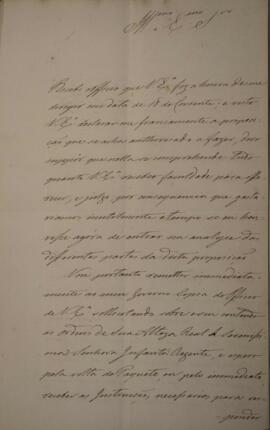 Illmo Exmo Snr
Recebi o Officio que V. Exª fez a honra de me
dirigir em data de 18 do Corrente; e visto
V. Exª declarar me francamente a proposi-
ção que se acha authorisado a fazer, devo
suppor que nella se comprehende tudo
quanto V. Exª recebeo faculdade para offe-
recer, e julgo por consequencia que gasta-
riamos inutilmente o tempo se eu hou-
vesse agora de entrar na analyse das
differentes partes da dita proposição
Vou portanto remetter immediata-
mente ao meu Governo Copia do Officio
de V. Exª sollicitando sobre o seu contheudo
as ordens de Sua Alteza Real a Serenissi-
ma Senhora Infanta Regente, e espero
pela volta do Paquete ou pelo immediato
receber as Instrucções necessarias para res-
ponder